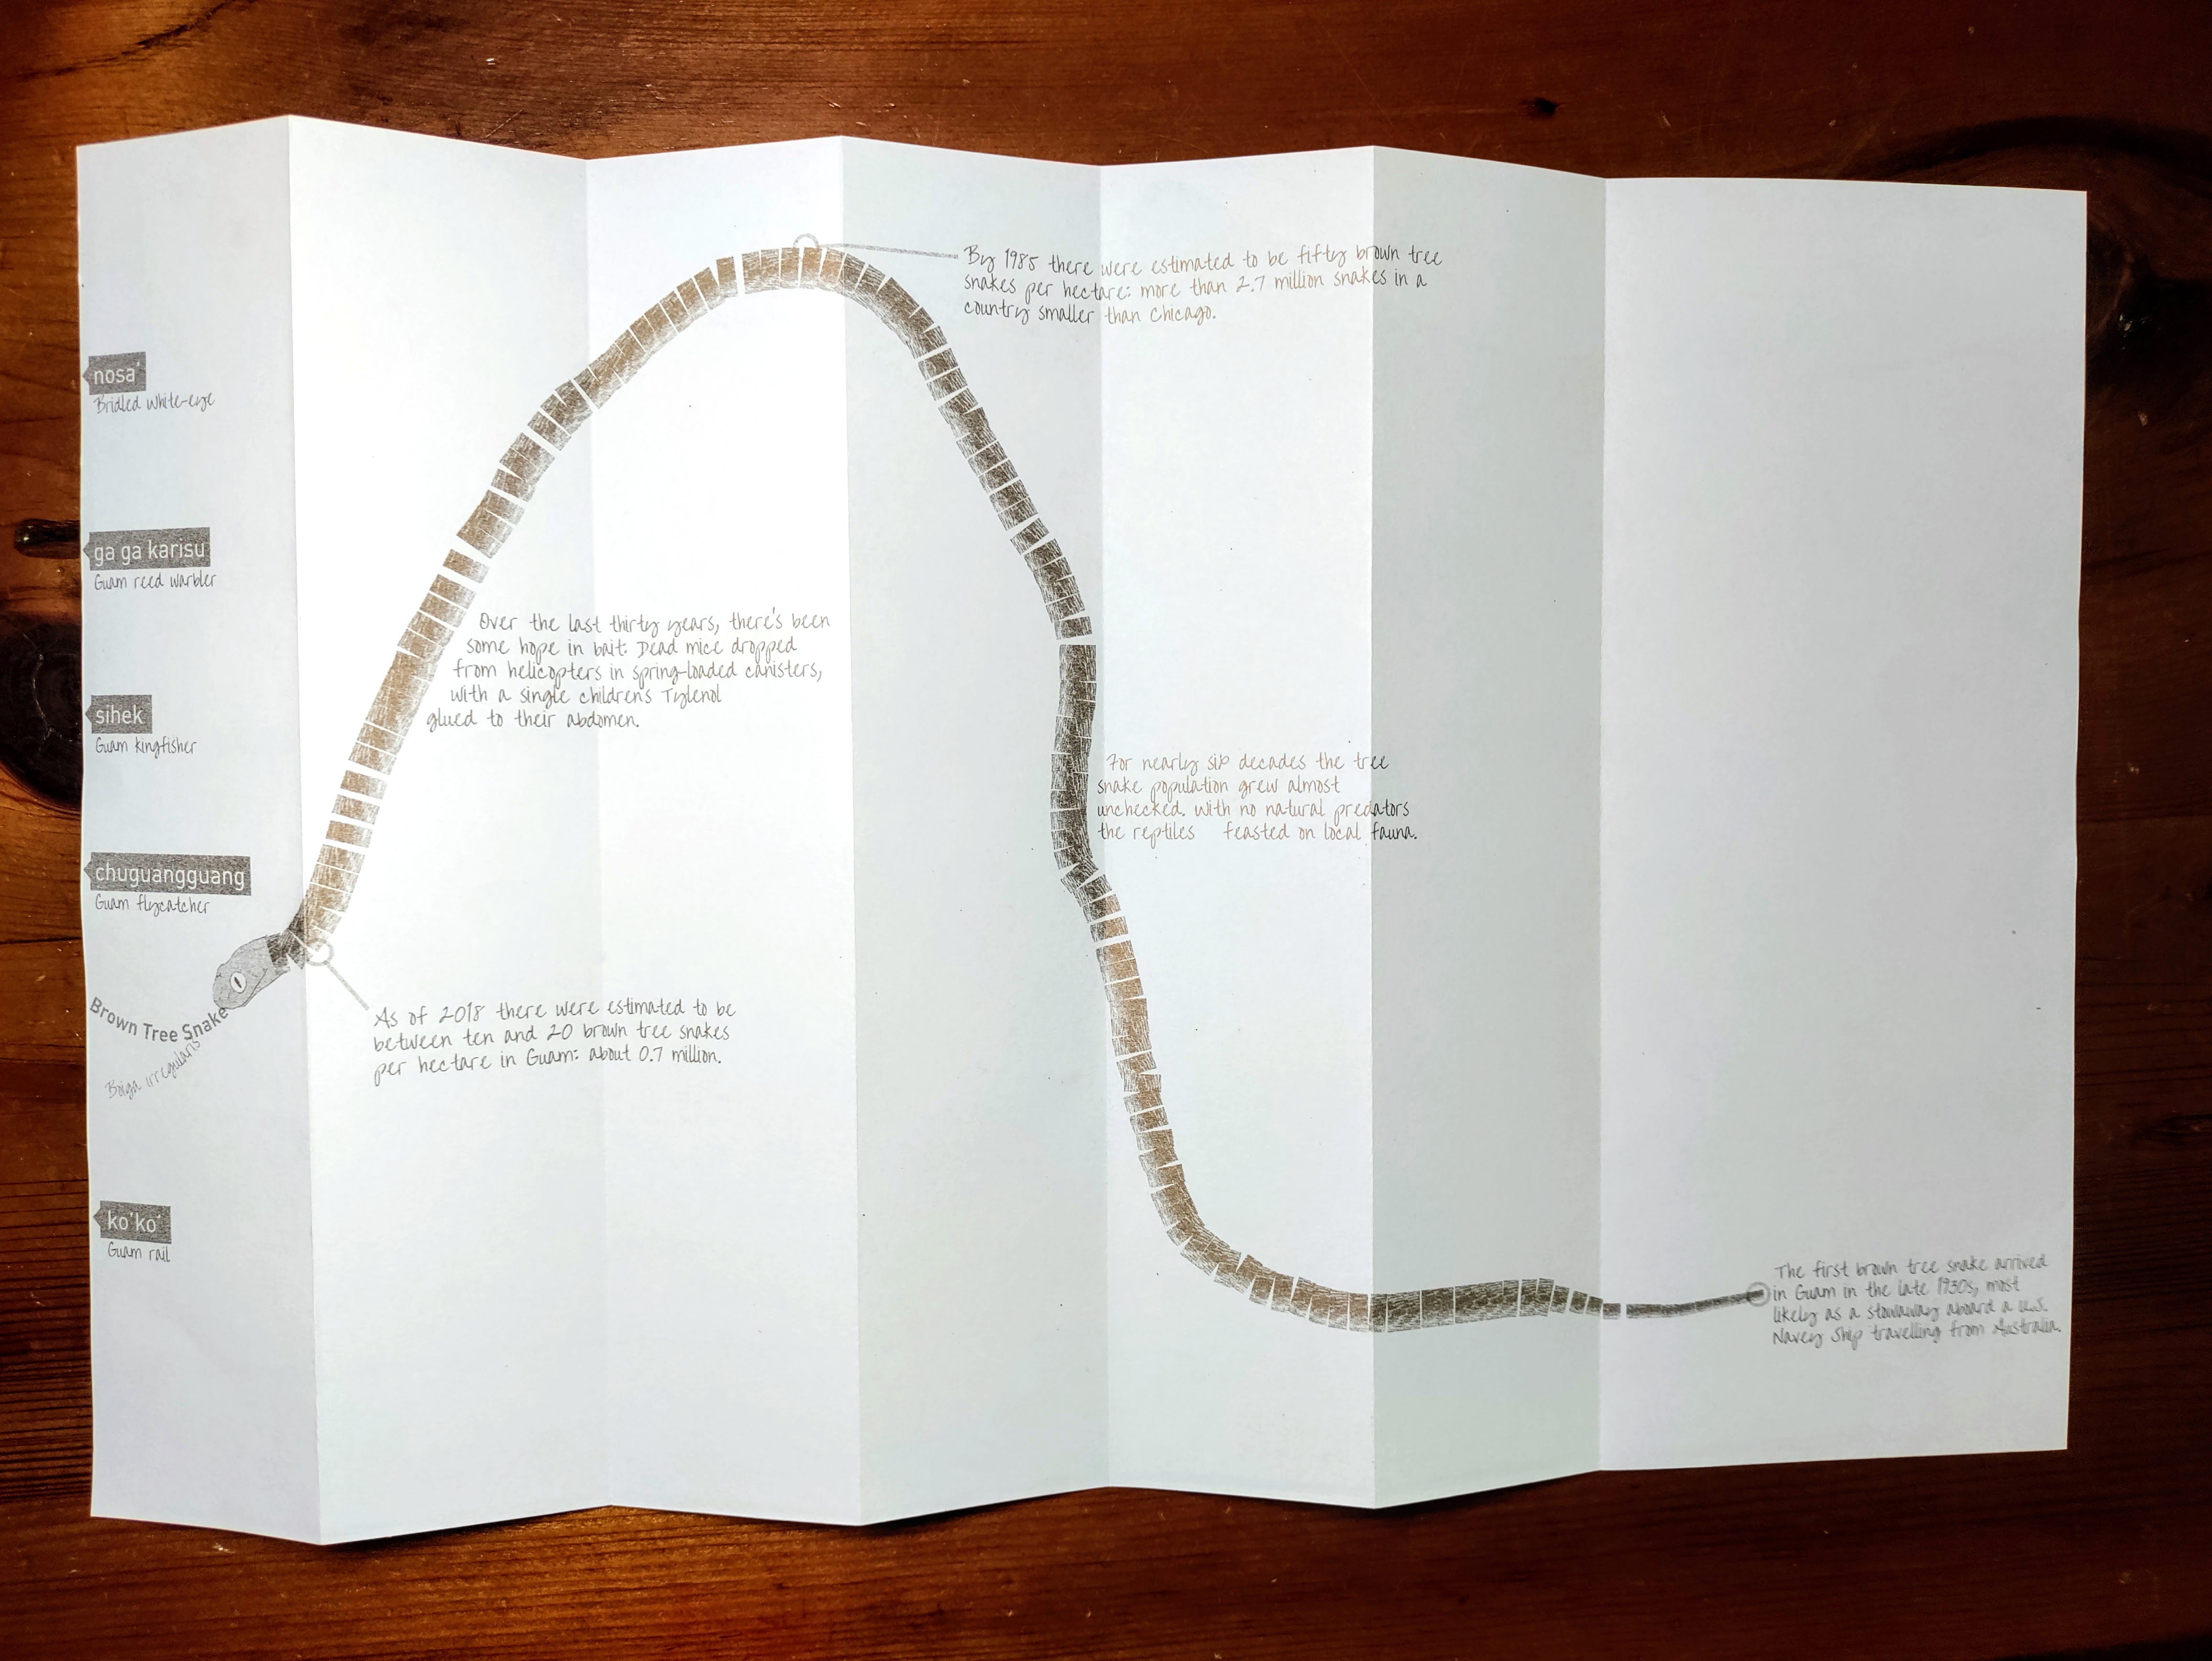 By 1985 there were estimated to be fifty brown tree
snakes per hectare: more than 2.7 million snakes in a
country smaller than Chicago.
nosa'
Bridled white-eye
ga ga karisu
Guam reed warbler
Over the last thirty years, there's been
some hope in bait: Dead mice dropped
from helicopters in spring-loaded canisters,
with a single childrens Tylenol
glued to their abdomen.
sihek
Guam kingfisher
For nearly six decades the tree
snake population grew almost
unchecked. With no natural predators
the reptiles feasted on local fauna.
chuguangguang
Guam flycatcher
Brown Tree Snake
Boiga irregularis
As of 2018 there were estimated to be
between ten and 20 brown tree snakes
per hectare in Guam: about 0.7 million.
ko'ko'
Guam rail
The first brown tree snake arrived
in Guam in the late 1930s, most
likely as a stowaway aboard a U.S.
Navey Ship travelling from Australia.